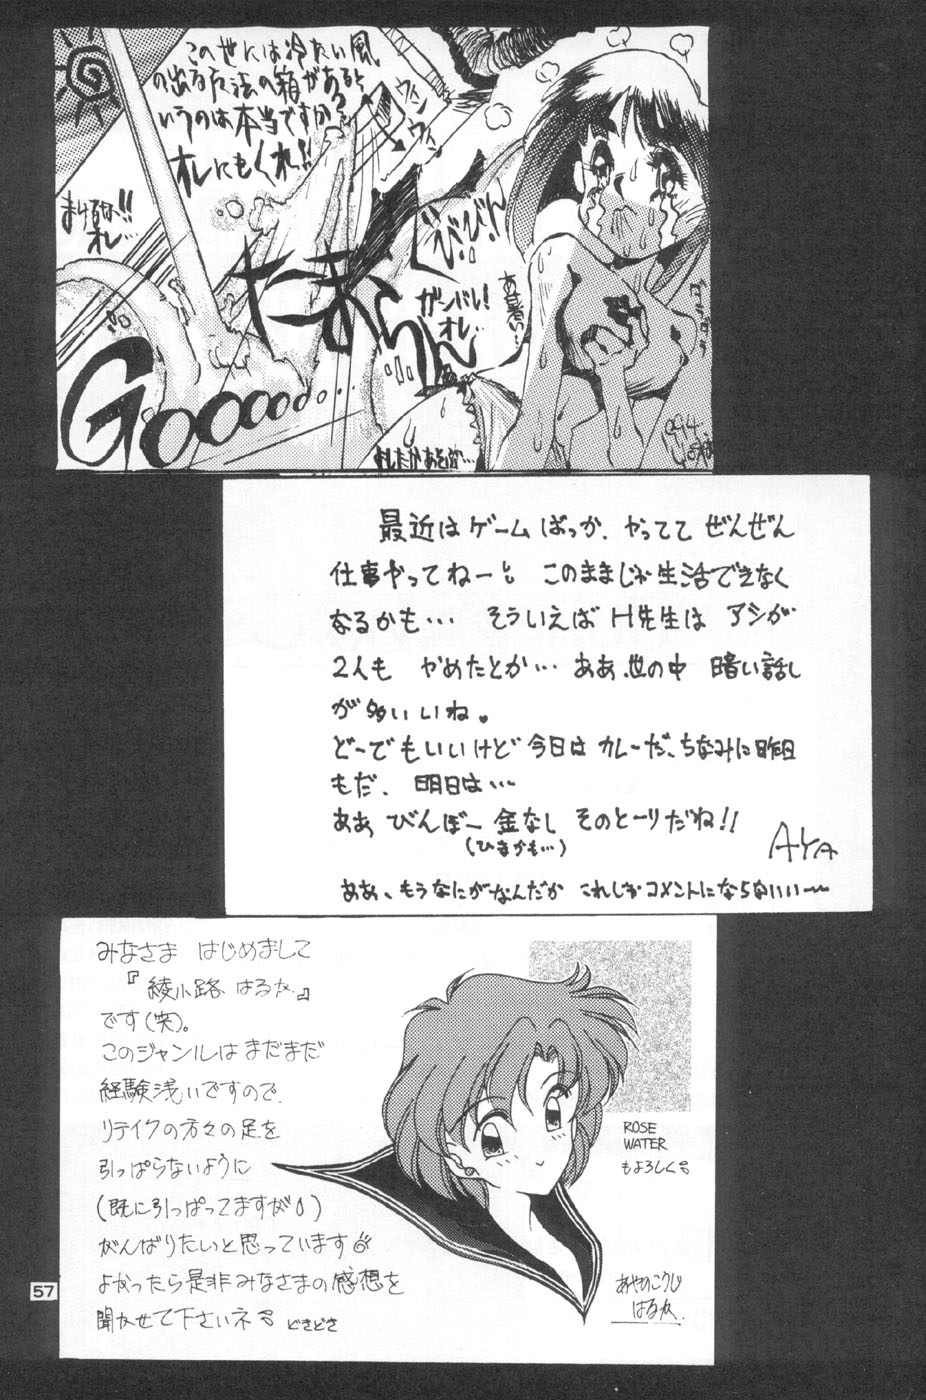 この世には冷たい風
の出る方法の箱があると
いうのは本当ですか?
オレにもくれ!!
ウィン
ウィン
まけるな!!
オレ…
びびびん
ガンバレ!
オレ…
あ暑い…
GOOOOOO...
最近はゲームばっか、やってて ぜんぜん
仕事やってねーし このままじゃ生活できなく
なるかも… そういえば H先生は アシが
2人も やめたとか… ああ、世の中 暗い話し
が多いいね。
どーでもいいけど今日は カレーだ、ちなみに昨日
もだ、明日は…
ああ びんぼー 金なし そのとーりだね!!
(ひまかも…)
AYA
ああ、もうなにがなんだか これじゃコメントにならないいー
みなさま はじめまして
『綾小路 はるか』
です(笑)。
このジャンルは まだまだ
経験浅いですので、
リテイクの方々の足を
引っぱらないように
(既に引っぱってますが)
がんばりたいと思っています
よかったら是非みなさまの感想を
聞かせて下さいネ どきどき
ROSE
WATER
もよろしく
あやのこうじ
はるか
57